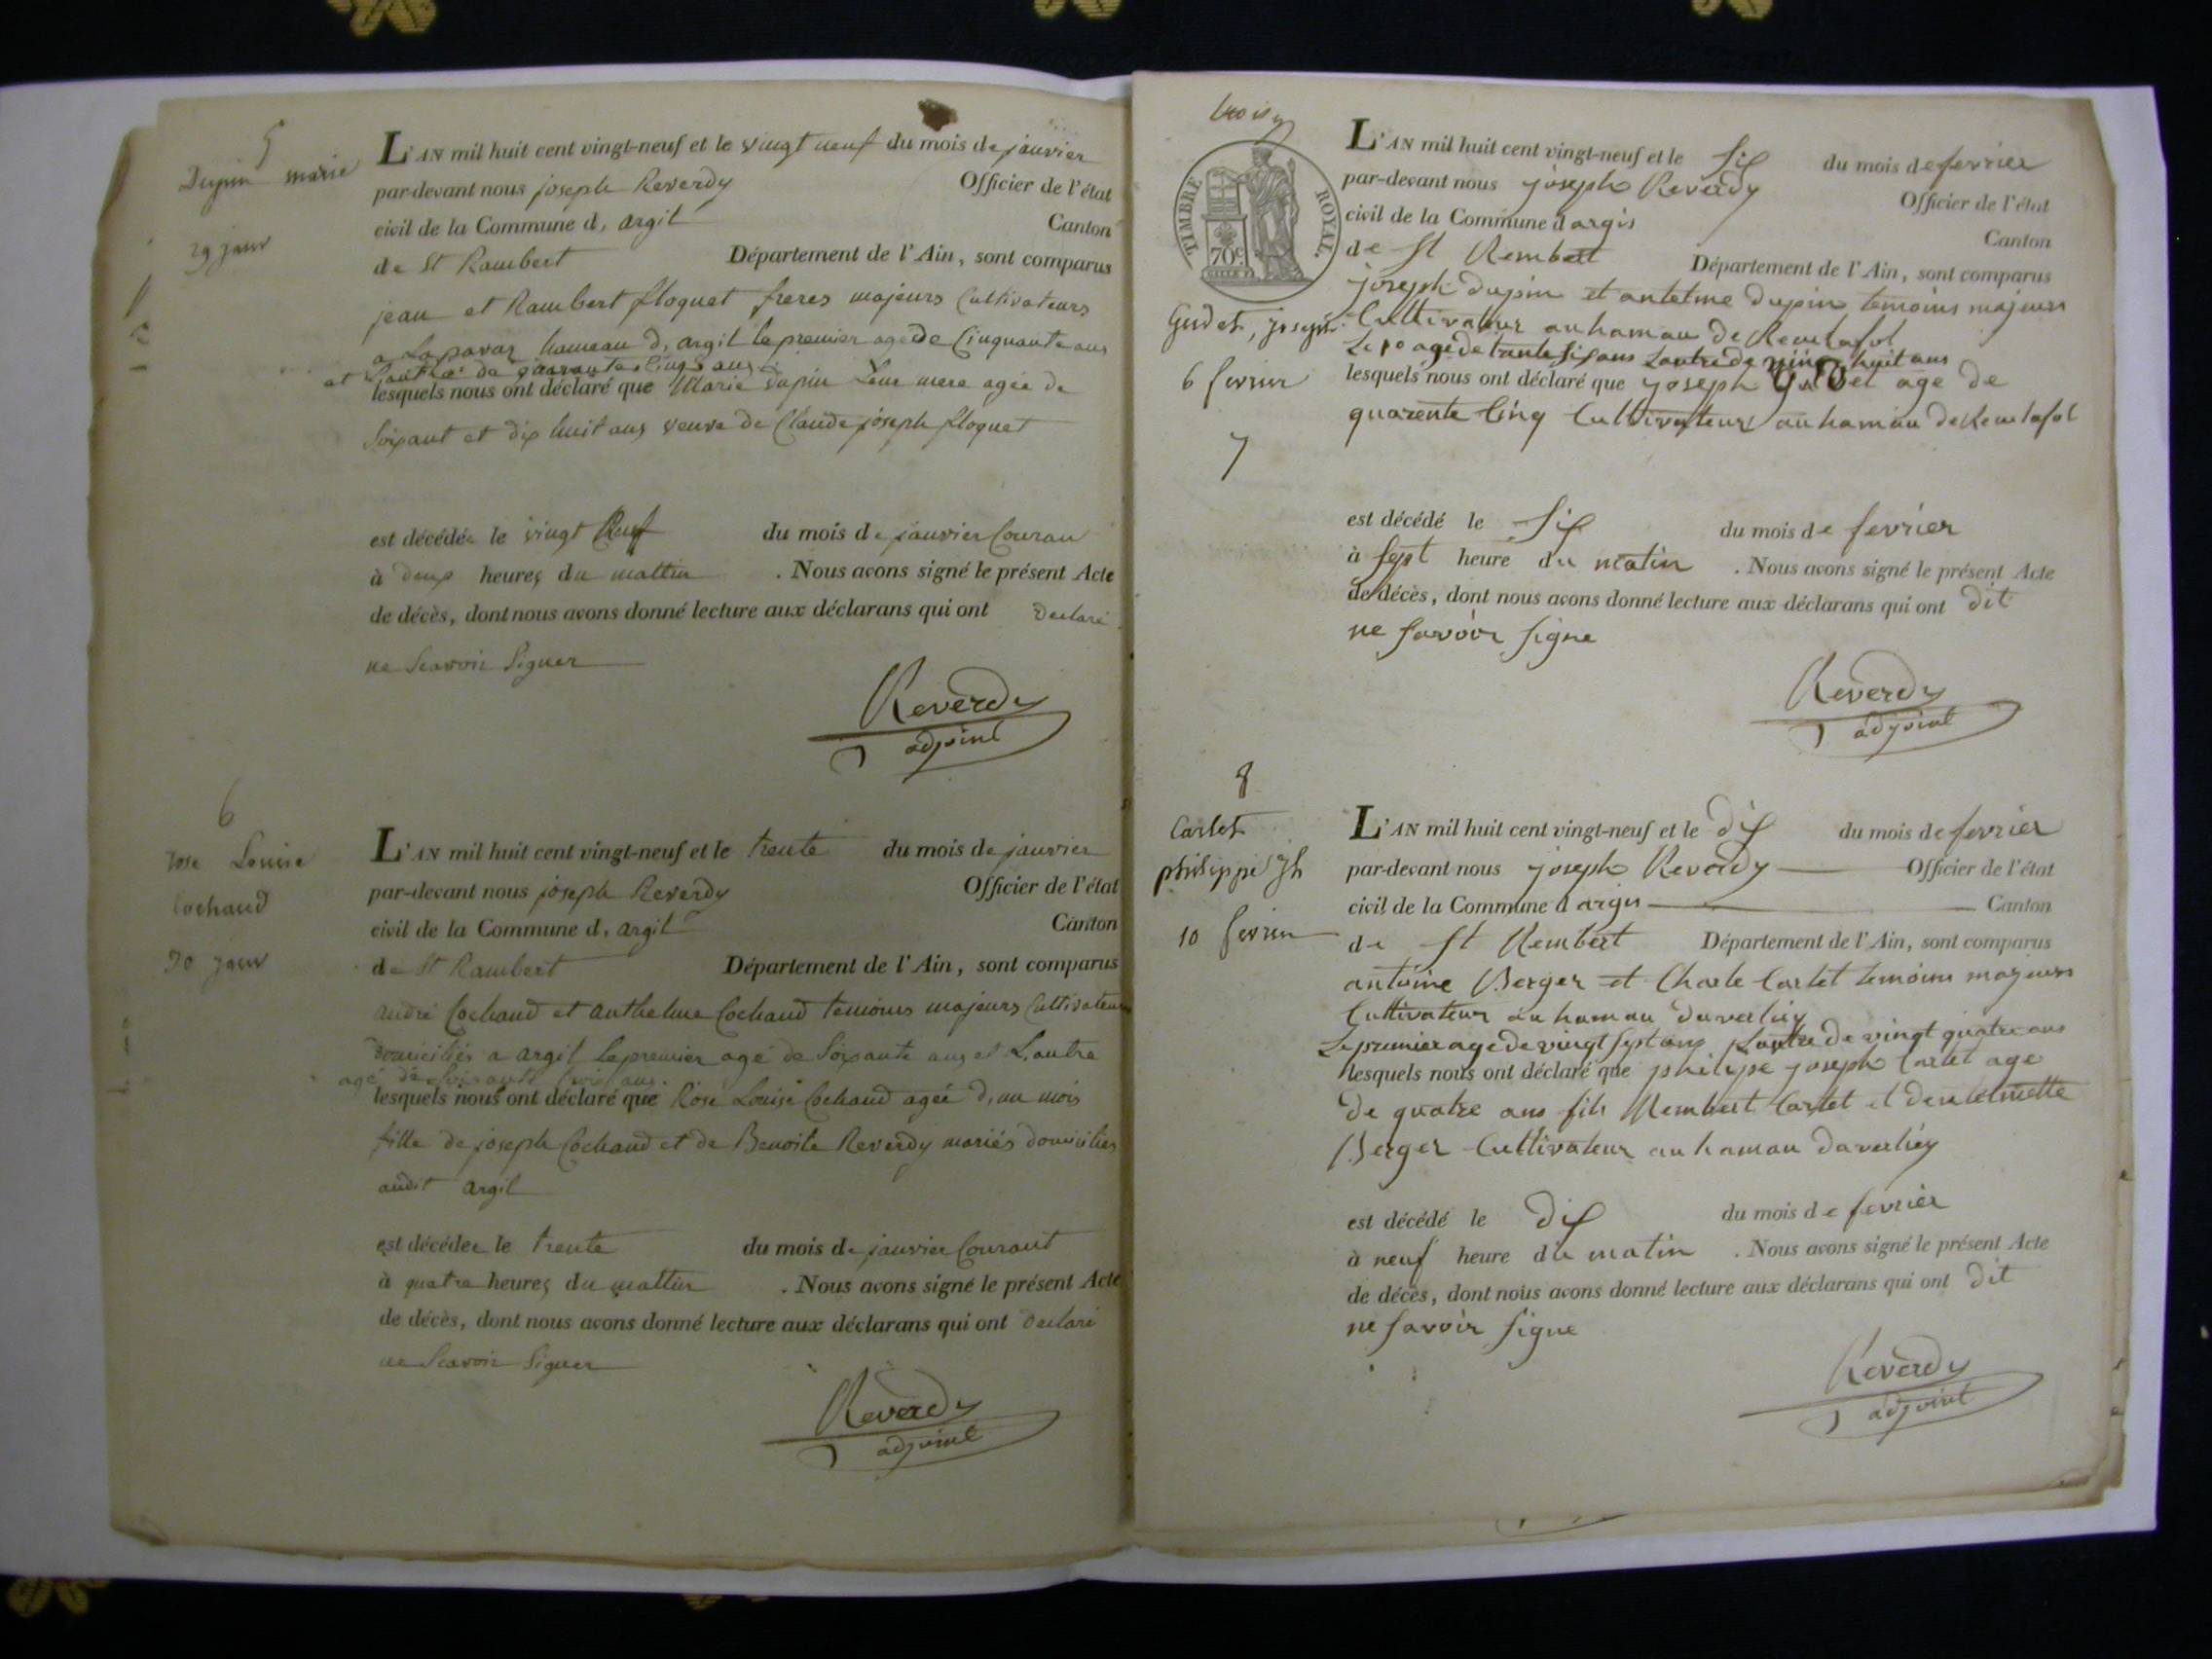 5
Dupin marie
29 janv
L'AN mil huit cent vingt-neuf et le vingt neuf du mois de janvier
par-devant nous joseph Reverdy Officier de l'état
civil de la Commune d, argil Canton
de St Rambert Département de l'Ain, sont comparus
jean et Rambert floquet freres majeurs Cultivateurs
a Lapavaz hameau d, argil le premier agé de Cinquante ans
et L'autre de quarante cinq ans
lesquels nous ont déclaré que Marie Dupin Leur mere agée de
Soixant et dix huit ans veuve de Claude joseph floquet
est décédée le vingt Neuf du mois de janvier Couran
à deux heures du mattin . Nous avons signé le présent Acte
de décès, dont nous avons donné lecture aux déclarans qui ont declaré
ne Scavoir Signer
Reverdy
adjoint
6
rose Louise
Cochaud
30 janv
L'AN mil huit cent vingt-neuf et le trente du mois de janvier
par-devant nous joseph Reverdy Officier de l'état
civil de la Commune d, argil Canton
de St Rambert Département de l'Ain, sont comparus
andré Cochaud et anthelme Cochaud temoins majeurs Cultivateurs
domiciliés a argil le premier agé de Soixante ans et L,autre
agé de Soixante trois ans
lesquels nous ont déclaré que Rose Louise Cochaud agée d,un mois
fille de joseph Cochaud et de Benoite Reverdy mariés domiciliés
audit argil
est décédée le trente du mois de janvier Courant
à quatre heures du mattin . Nous avons signé le présent Acte
de décès, dont nous avons donné lecture aux déclarans qui ont declaré
ne Scavoir Signer
Reverdy
adjoint
trois
TIMBRE ROYAL
70c
Gudet, joseph
6 fevrier
7
L'AN mil huit cent vingt-neuf et le six du mois de fevrier
par-devant nous joseph Reverdy Officier de l'état
civil de la Commune d argis Canton
de St Rembert Département de l'Ain, sont comparus
joseph Dupin et antelme Dupin temoins majeurs
Cultivateur au hamau de Reculafol
Le 1o age de trante six ans Lautre de vingt huit ans
lesquels nous ont déclaré que joseph Gudet age de
quarente Cinq Cultivateur au hamau de Reculafol
est décédé le six du mois de fevrier
à sept heure du matin . Nous avons signé le présent Acte
de décès, dont nous avons donné lecture aux déclarans qui ont dit
ne savoir signe
Reverdy
adjoint
8
Carlet
philippe jh
10 fevrier
L'AN mil huit cent vingt-neuf et le dix du mois de fevrier
par-devant nous joseph Reverdy Officier de l'état
civil de la Commune d argis Canton
de St Rembert Département de l'Ain, sont comparus
antoine Berger et Charle Carlet temoins majeurs
Cultivateur au hamau Davarliey
Le premier age de vingt sept ans Lautre de vingt quatre ans
lesquels nous ont déclaré que philipe joseph Carlet age
de quatre ans fils Rembert Carlet et
Berger Cultivateur au hamau Davarliey
est décédé le dix du mois de fevrier
à neuf heure du matin . Nous avons signé le présent Acte
de décès, dont nous avons donné lecture aux déclarans qui ont dit
ne savoir signe
Reverdy
adjoint